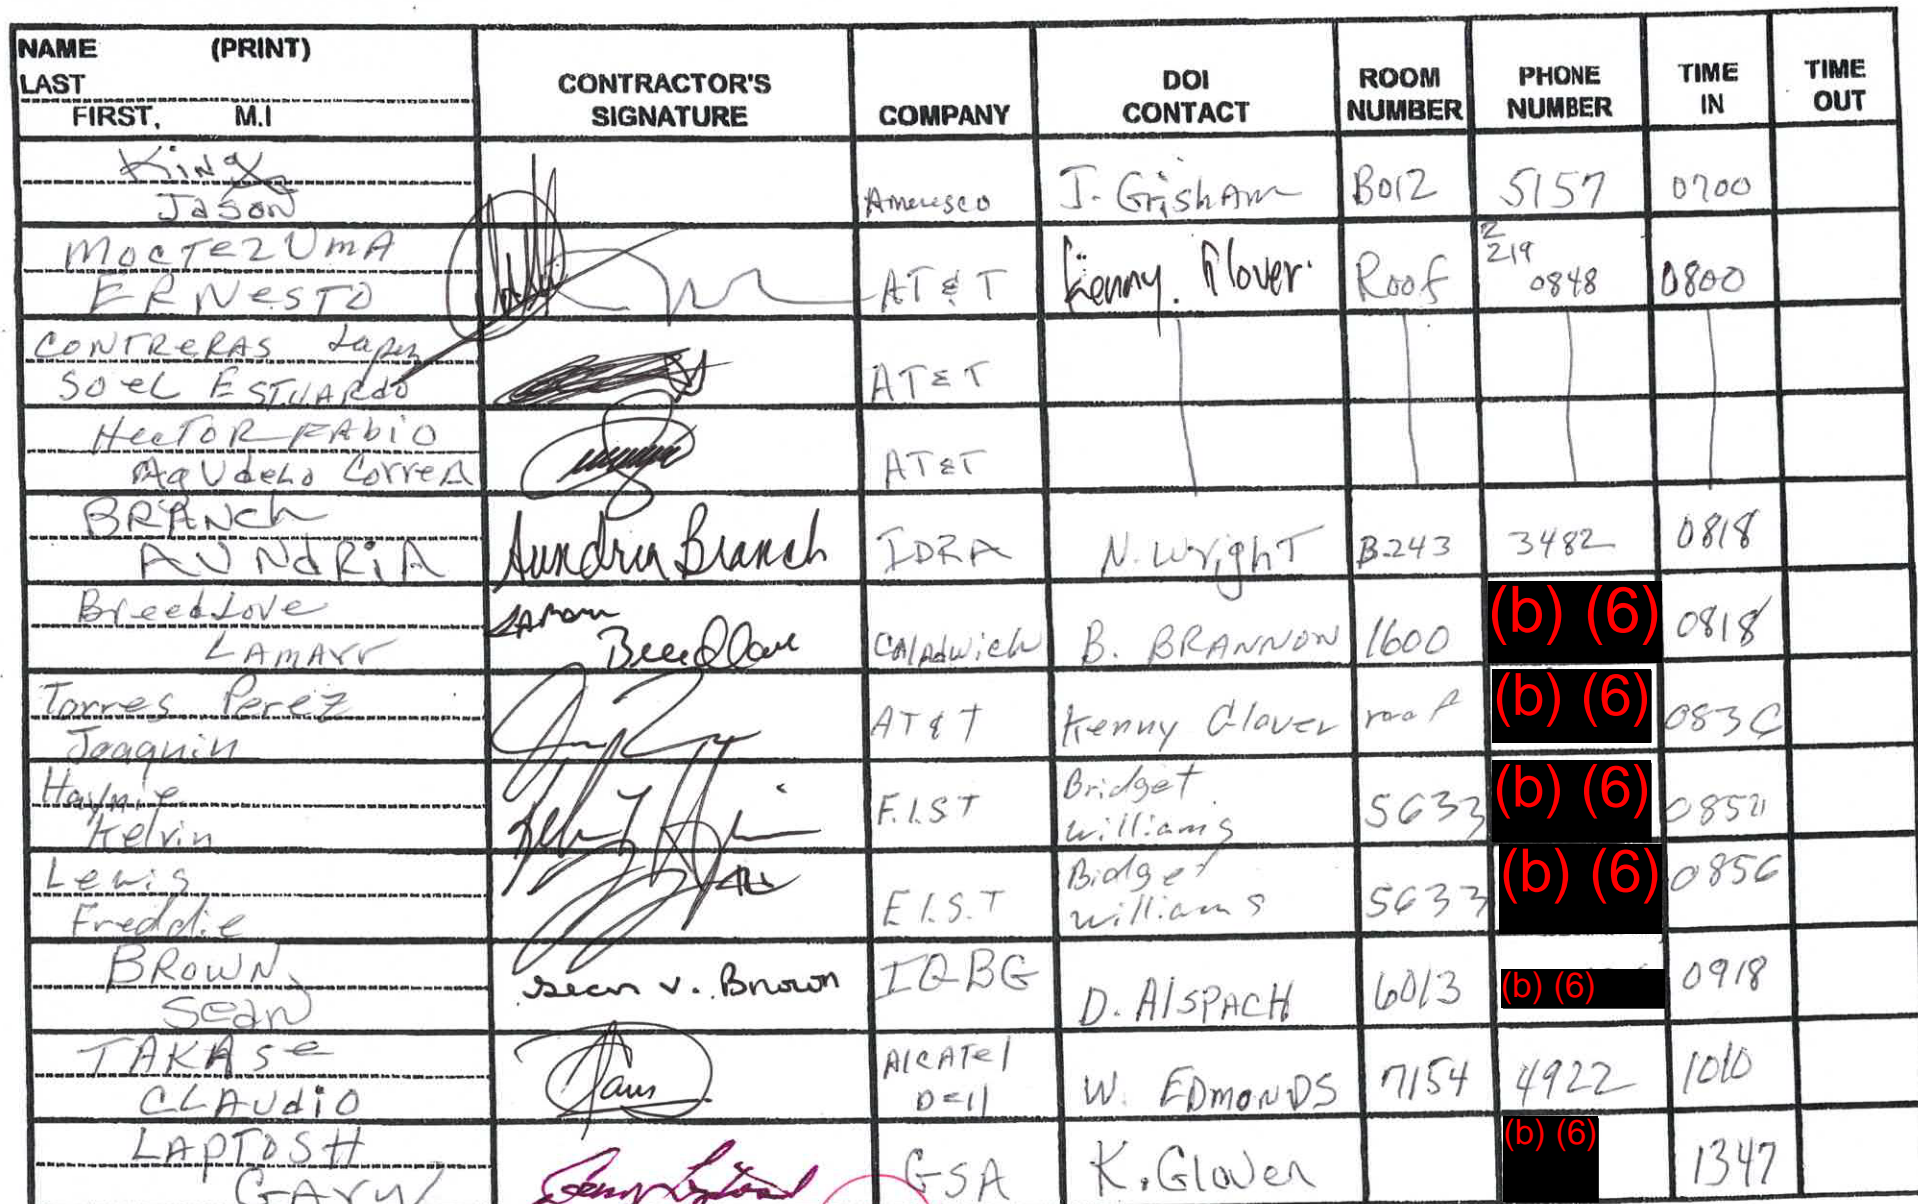 NAME (PRINT)
LAST
FIRST, M.I
CONTRACTOR'S
SIGNATURE
COMPANY
DOI
CONTACT
ROOM
NUMBER
PHONE
NUMBER
TIME
IN
TIME
OUT
King
Jason
Ameresco
J. Grisham
B012
5157
0700
MOCTEZUMA
ERNESTO
AT&T
Kenny. Glover.
Roof
2
219
0848
0800
CONTRERAS
SOEL ESTUARdo
AT&T
HecTOR FAbiO
AgUdeLo CorreA
AT&T
BRANCh
AUNdRiA
Aundria Branch
IDRA
N. WrighT
B-243
3482
0818
BreedLove
LAMArr
Lamarr
Breedlove
B. BRANNON
1600
(b) (6)
0818
Torres Perez
Joaquin
AT&T
Kenny Glover
roof
(b) (6)
Haynie
Kelvin
Bridget
Williams
5633
(b) (6)
Lewis
Freddie
E.I.S.T
Bidget
Williams
5633
(b) (6)
0856
BROWN,
Sean
Sean v. Brown
IQBG
D. AlSPACH
6013
(b) (6)
0918
TAKASe
CLAUdiO
AlCATel
Dell
W. EDmONDS
7154
4922
1010
LAPTOSH
GAry
GSA
K. Glover
(b) (6)
1347